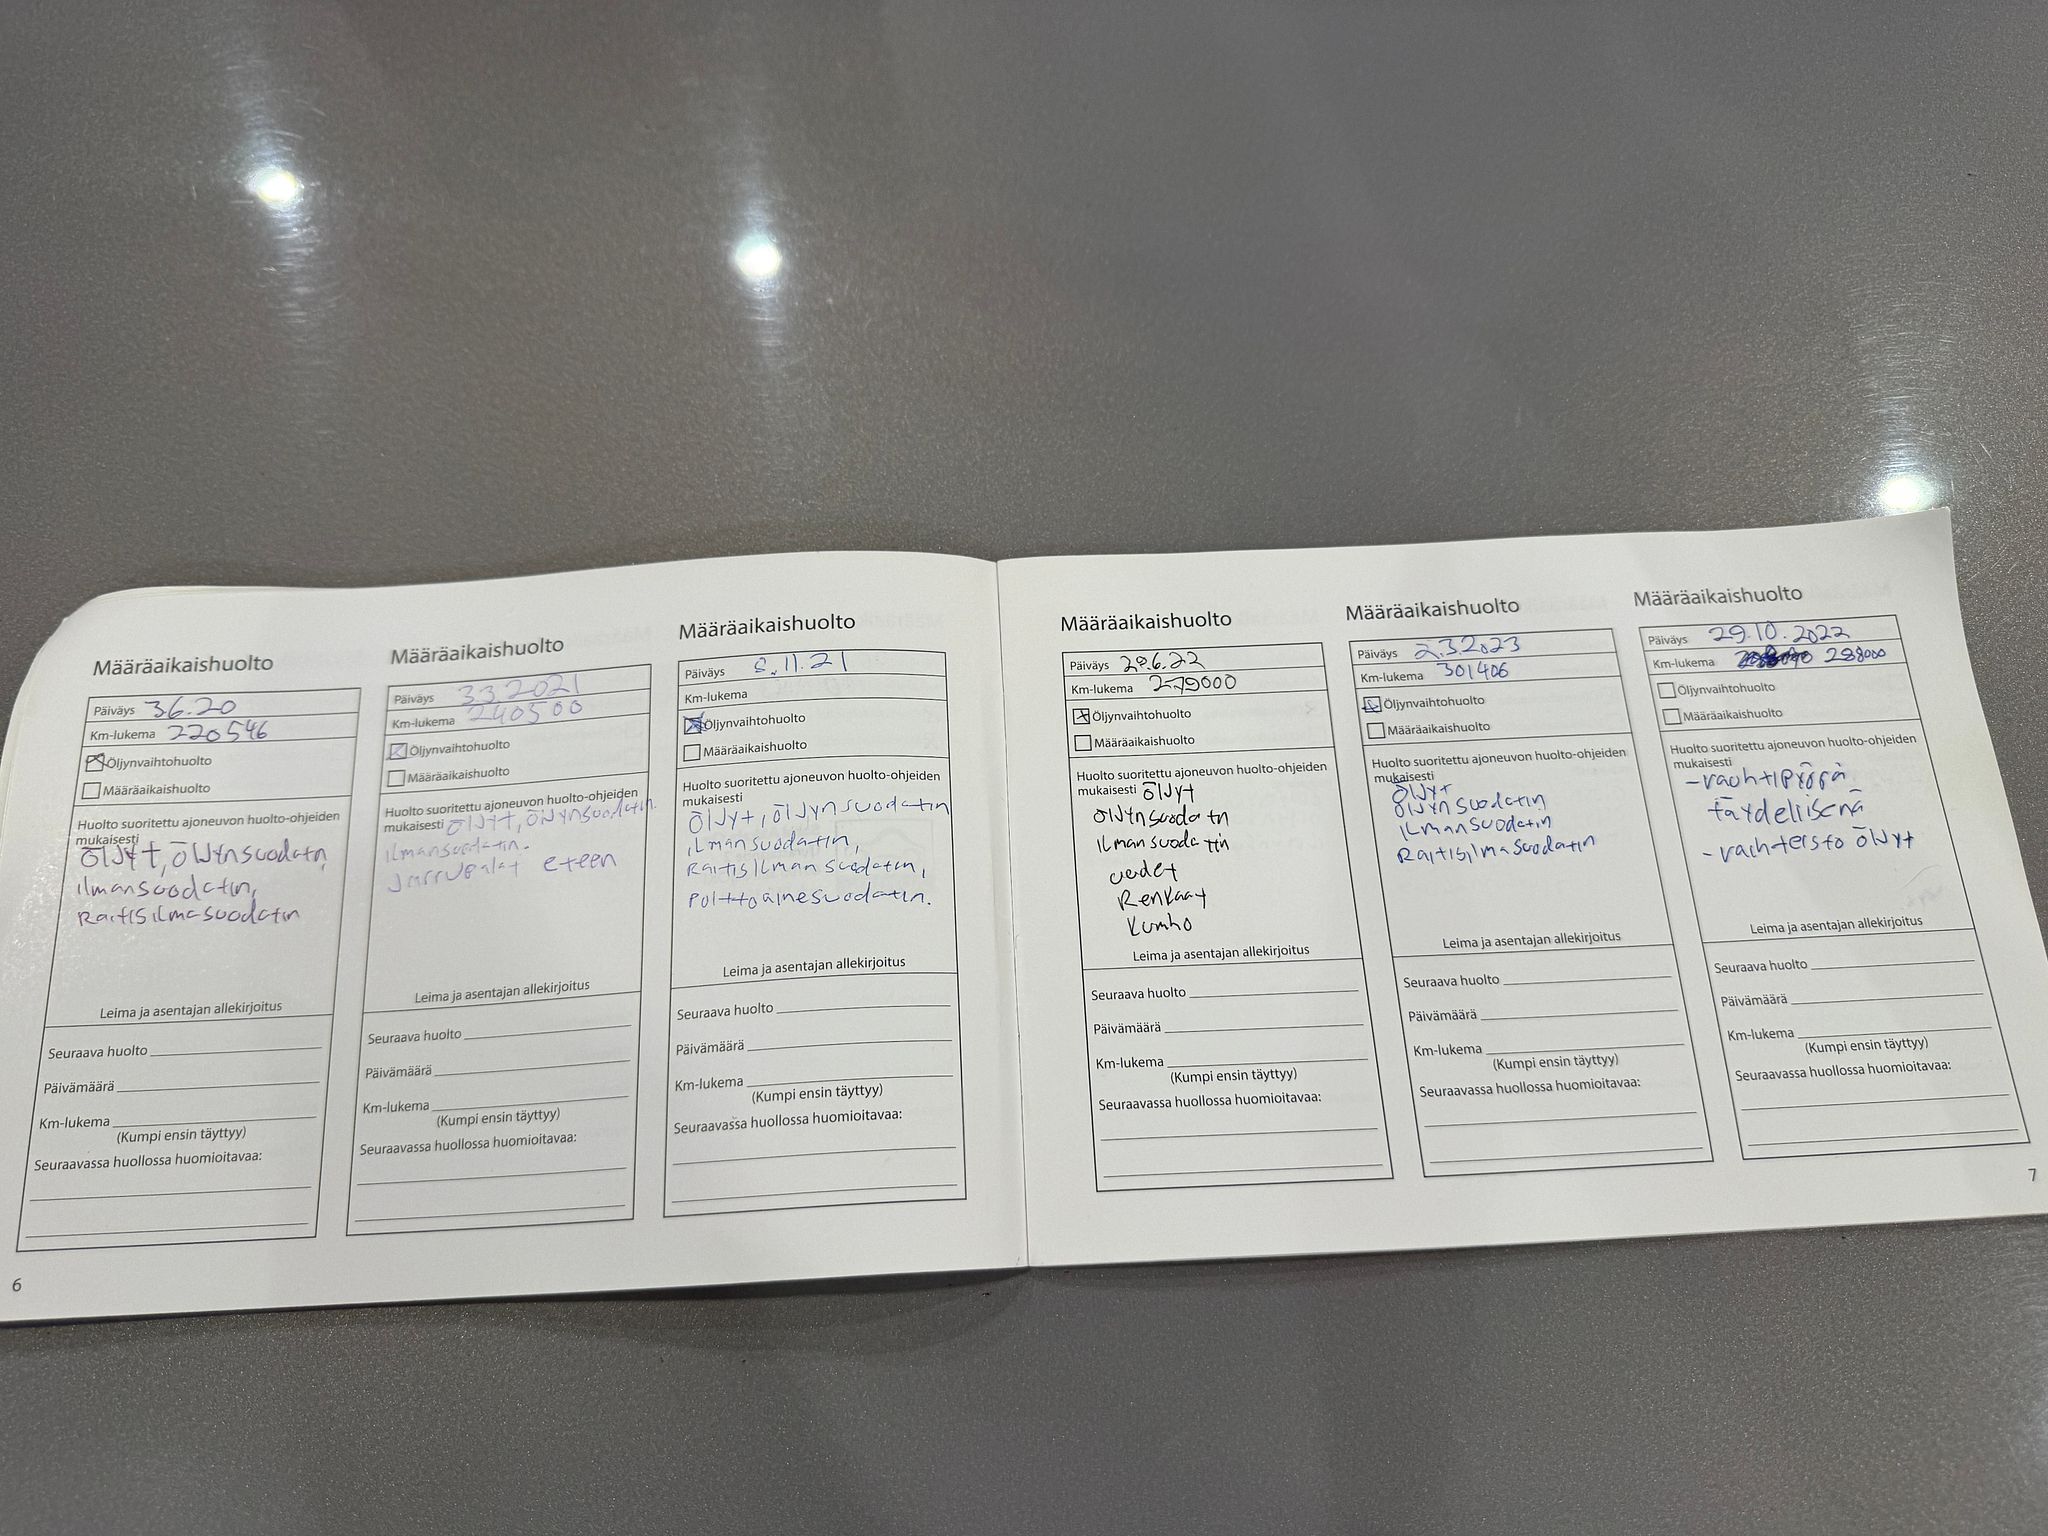 Määräaikaishuolto
Päiväys 3.6.20
Km-lukema 220546
Öljynvaihtohuolto
Määräaikaishuolto
Huolto suoritettu ajoneuvon huolto-ohjeiden
mukaisesti
Öljyt, öljynsuodatn
ilmansuodatin,
Raitisilmasuodatin
Leima ja asentajan allekirjoitus
Seuraava huolto
Päivämäärä
Km-lukema
(Kumpi ensin täyttyy)
Seuraavassa huollossa huomioitavaa:
6
Määräaikaishuolto
Päiväys 3.3.2021
Km-lukema 240500
Öljynvaihtohuolto
Määräaikaishuolto
Huolto suoritettu ajoneuvon huolto-ohjeiden
mukaisesti öljyt, öljynsuodatin.
ilmansuodatin.
Jarrupalat eteen
Leima ja asentajan allekirjoitus
Seuraava huolto
Päivämäärä
Km-lukema
(Kumpi ensin täyttyy)
Seuraavassa huollossa huomioitavaa:
Määräaikaishuolto
Päiväys
Km-lukema
Öljynvaihtohuolto
Määräaikaishuolto
Huolto suoritettu ajoneuvon huolto-ohjeiden
mukaisesti
Öljyt, öljynsuodatin
ilmansuodatin,
Raitisilmansuodatin,
polttoainesuodatin.
Leima ja asentajan allekirjoitus
Seuraava huolto
Päivämäärä
Km-lukema
(Kumpi ensin täyttyy)
Seuraavassa huollossa huomioitavaa:
Määräaikaishuolto
Päiväys
Km-lukema 279000
Öljynvaihtohuolto
Määräaikaishuolto
Huolto suoritettu ajoneuvon huolto-ohjeiden
mukaisesti öljyt
öljynsuodatn
ilmansuodatin
uudet
Renkaat
Kumho
Leima ja asentajan allekirjoitus
Seuraava huolto
Päivämäärä
Km-lukema
(Kumpi ensin täyttyy)
Seuraavassa huollossa huomioitavaa:
Määräaikaishuolto
Päiväys 2.3.2023
Km-lukema 301406
Öljynvaihtohuolto
Määräaikaishuolto
Huolto suoritettu ajoneuvon huolto-ohjeiden
mukaisesti
öljyt
öljynsuodatin
ilmansuodatin
Raitisilmasuodatin
Leima ja asentajan allekirjoitus
Seuraava huolto
Päivämäärä
Km-lukema
(Kumpi ensin täyttyy)
Seuraavassa huollossa huomioitavaa:
Määräaikaishuolto
Päiväys 29.10.2022
Km-lukema 288000
Öljynvaihtohuolto
Määräaikaishuolto
Huolto suoritettu ajoneuvon huolto-ohjeiden
mukaisesti
täydellisenä
öljyt
Leima ja asentajan allekirjoitus
Seuraava huolto
Päivämäärä
Km-lukema
(Kumpi ensin täyttyy)
Seuraavassa huollossa huomioitavaa:
7